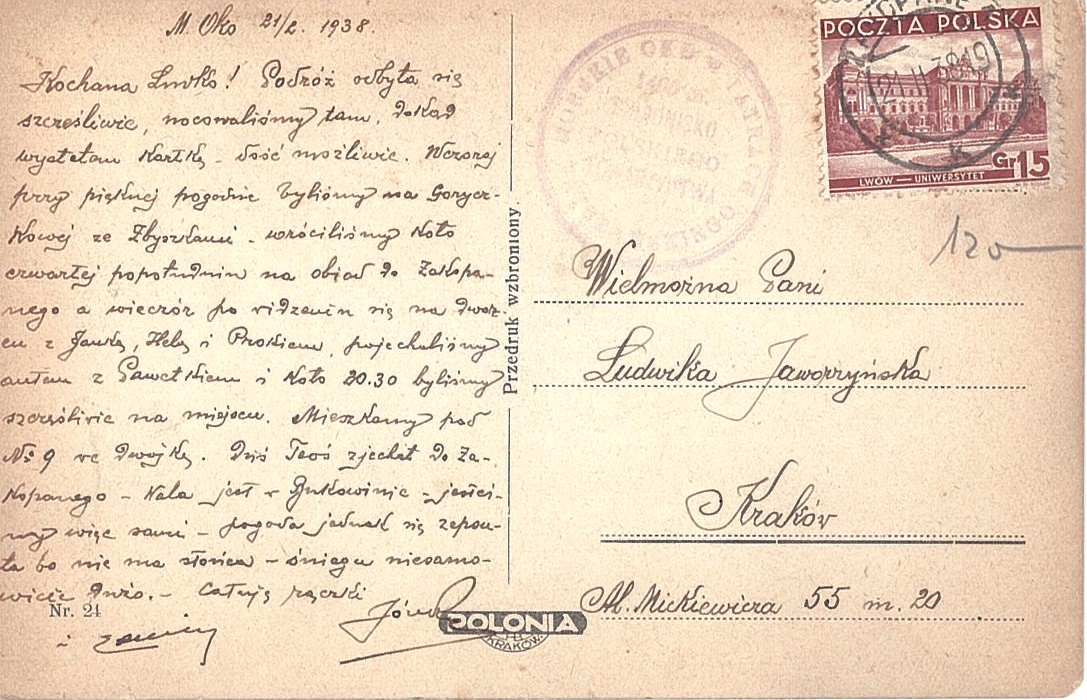 M. Oko 21/2. 1938.
Kochana Lusko! Podróż odbyta się
szczęśliwie, nocowaliśmy tam, dokąd
wysłałam kartkę - dość możliwie. Wczoraj
przy pięknej pogodzie byliśmy na Gorycz-
kowej ze Zbyszkami - wróciliśmy koło
czwartej popołudniu na obiad do Zakopa-
nego a wieczór po widzeniu się na dwor-
cu z Janką, Helą i Prokiem, pojechaliśmy
autem z Pawełkiem i koło 20.30 byliśmy
szczęśliwie na miejscu. Mieszkamy pod
№ 9 we dwójkę. Dziś Teoś zjechał do Za-
kopanego - Hala jest w Bukowinie - jesteś-
my więc sami - pogoda jednak się zepsu-
ła bo nie ma słońca - śniegu niesamo-
wicie dużo. - Całuję rączki
i
Nr. 24
Przedruk wzbroniony.
POLONIA
KRAKÓW
MORSKIE OKO W TATRACH
POCZTA POLSKA
ZAKOPANE
21 II 38 19
LWÓW — UNIWERSYTET
Gr 15
120
Wielmożna Pani
Ludwika Jaworzyńska
Kraków
Al. Mickiewicza 55 m. 20